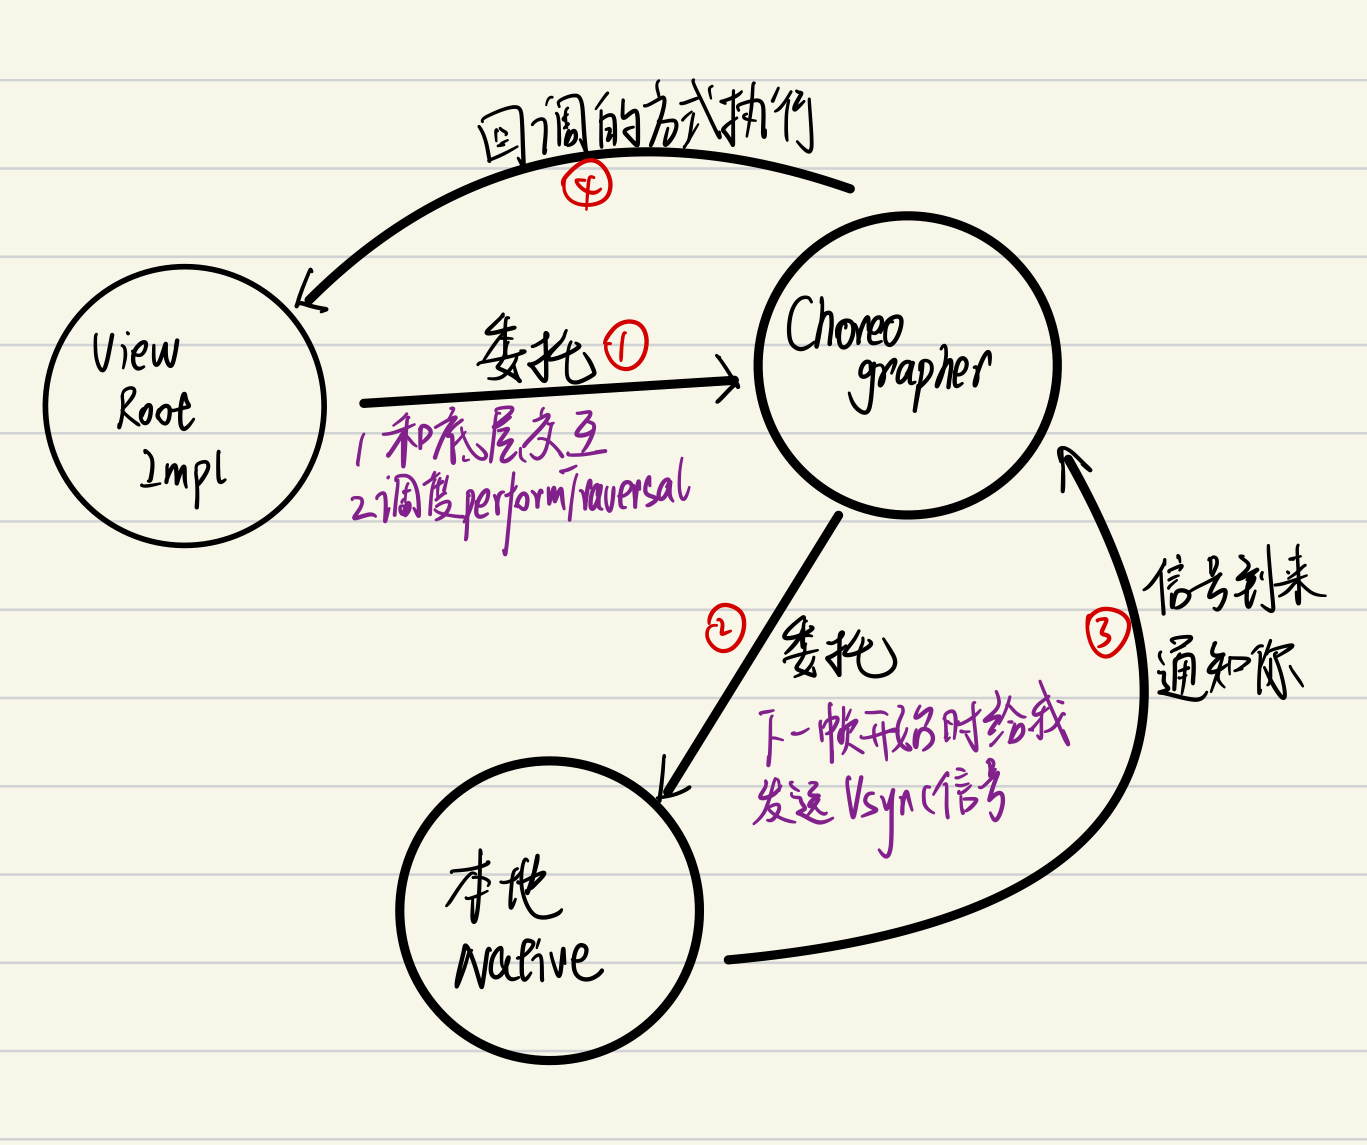 回调的方式执行
④
View
Root
Impl
委托 ①
1 和底层交互
2 调度performTraversal
Choreo
grapher
②
委托
下一帧开始时给我
发送Vsync信号
③
信号到来
通知你
本地
Native